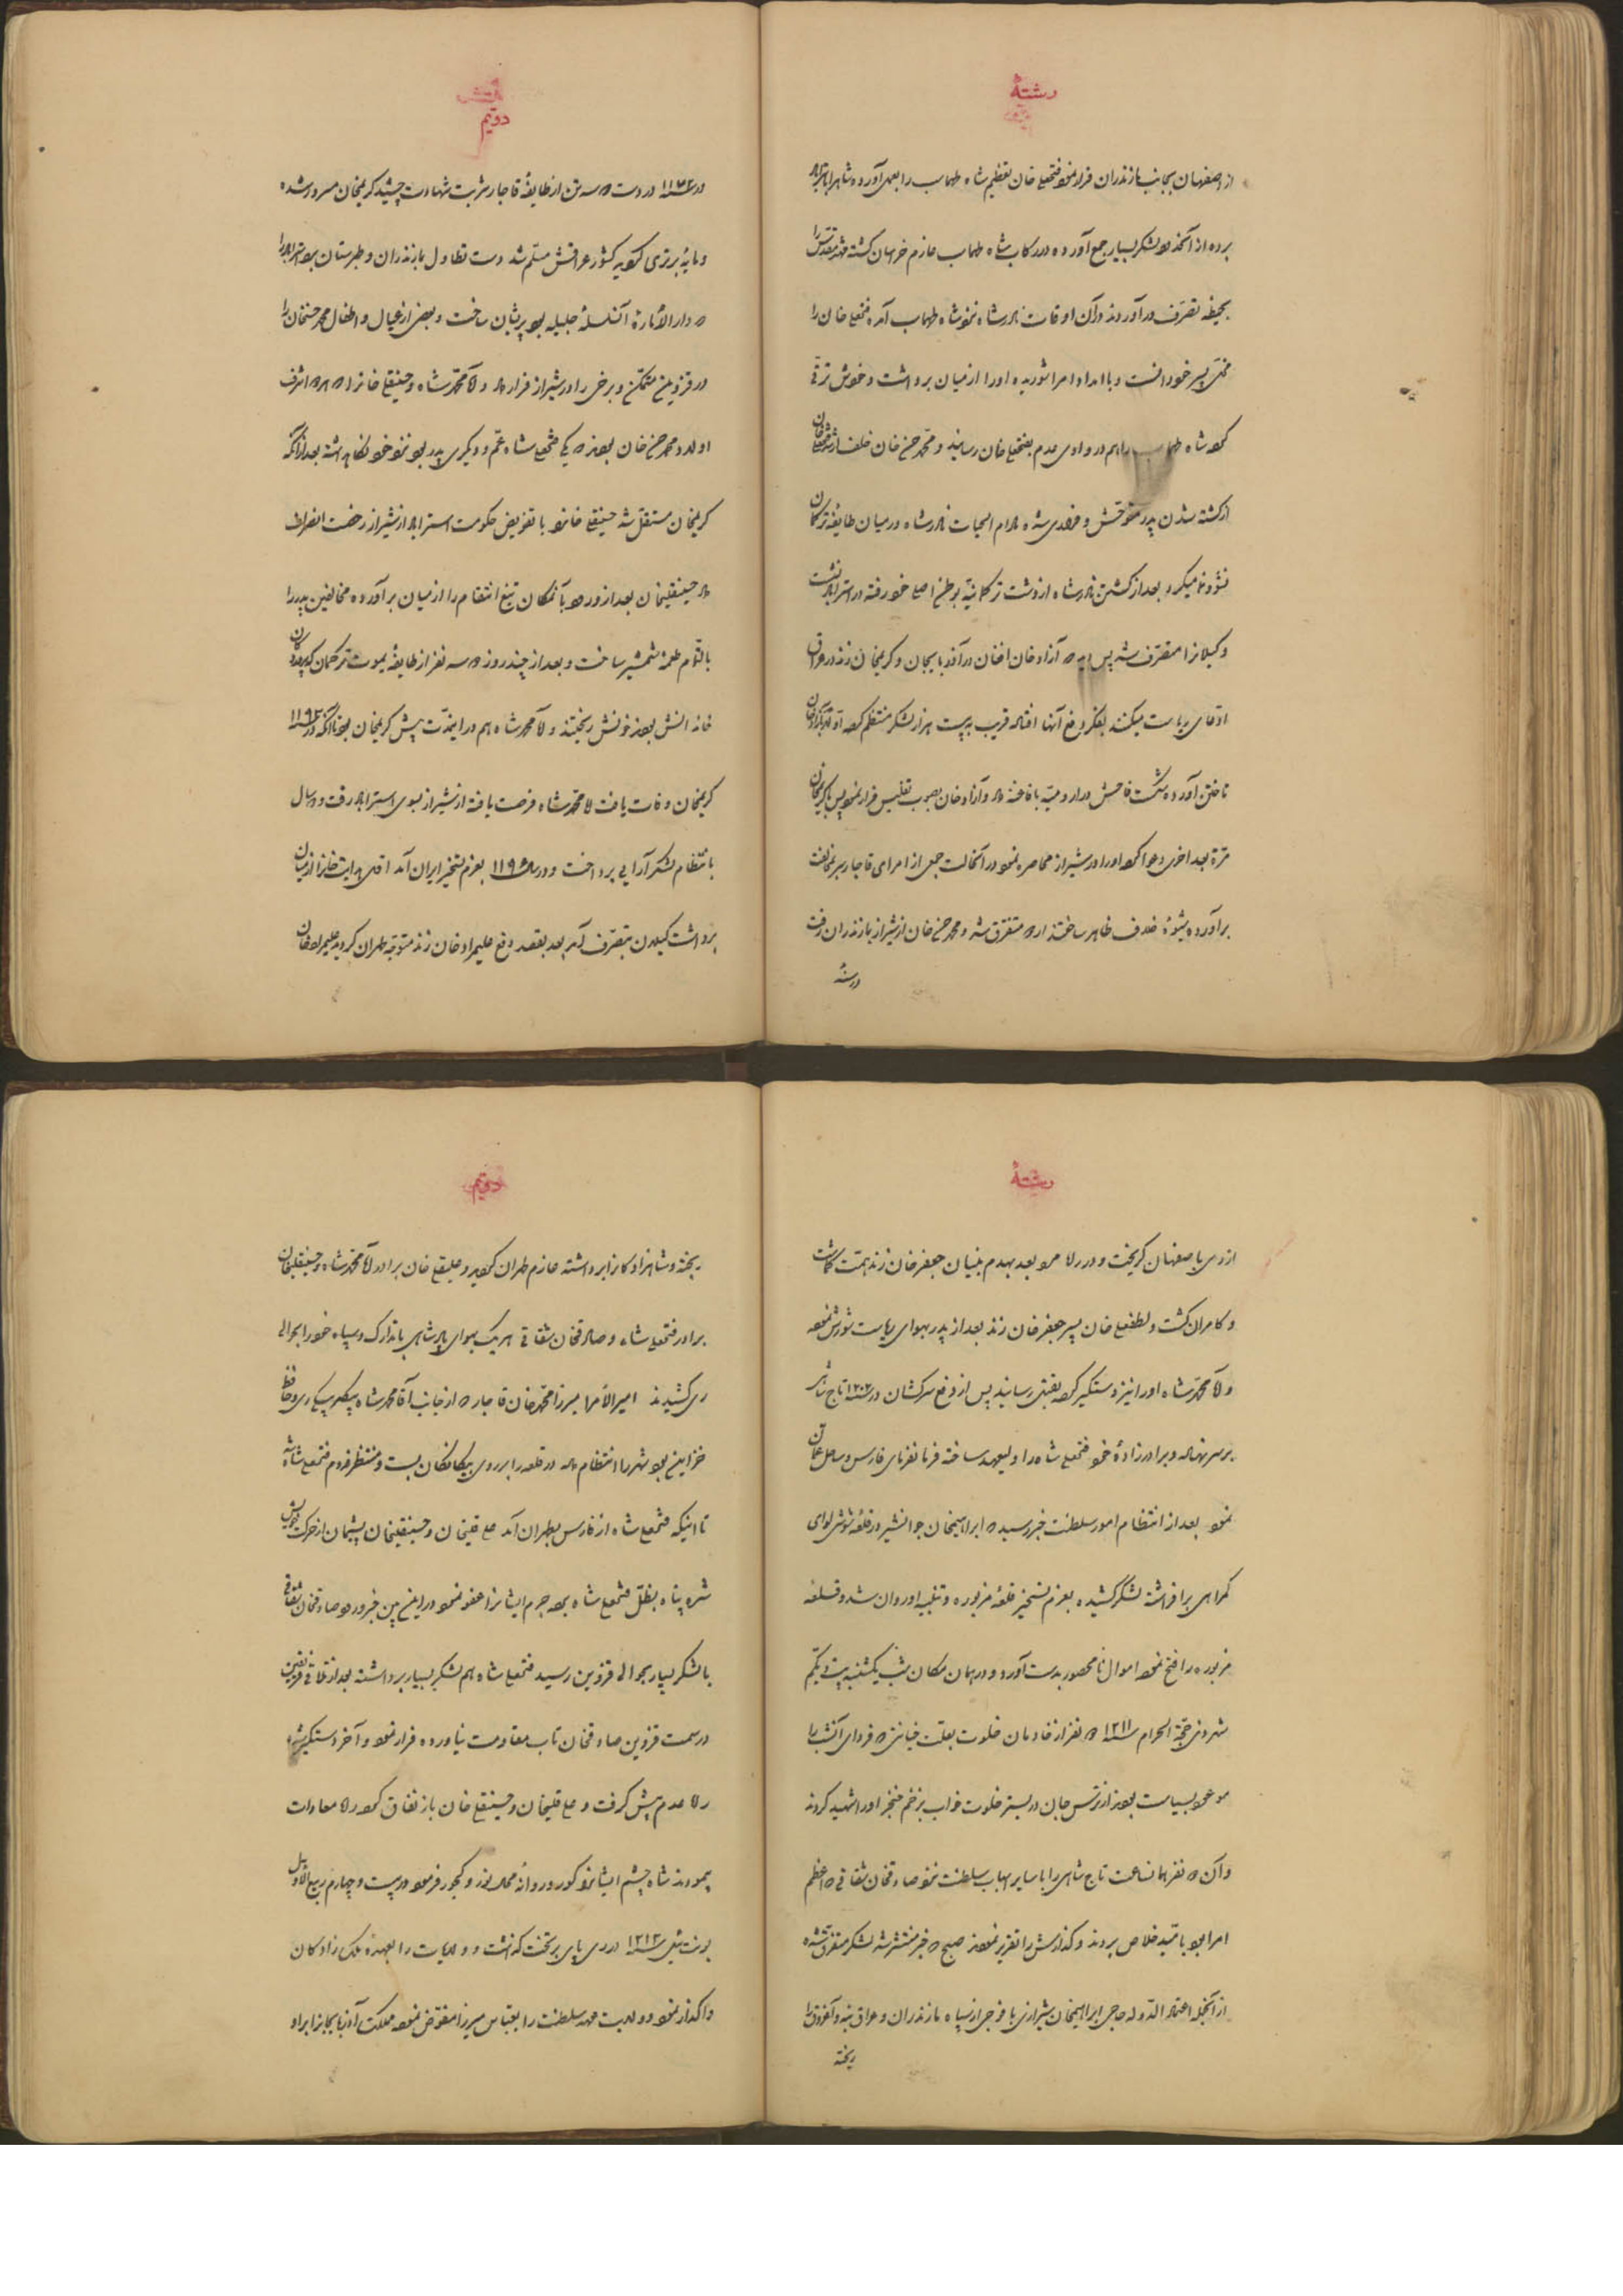 رشتۀ
از اصفهان بجانب مازندران فرار نمود فتحعلی خان تعظیم شاه طهماسب را بعمل آورده شاه را باستراباد
برده از آنحدود لشکر بسیار جمع آورده در رکاب شاه طهماسب عازم خراسان گشته مشهد مقدس را
بحیطه تصرف درآوردند در آن اوقات نادرشاه نزد شاه طهماسب آمده فتحعلی خان را
مخل سیر خود دانست و با امداد امرا شوریده او را از میان برداشت و خوش ترقی
کرد شاه طهماسب را هم در وادی عدم بفتحعلی خان رسانید و محمد حسن خان خلف ارشد فتحعلی خان
از کشته شدن پدر متوحش و فراری شد مادام الحیات نادرشاه در میان طایفۀ ترکمان
نشو و نما میکرد بعد از کشتن نادرشاه از دشت ترکمانیه بوطن اصلی خود رفته در استراباد نشست
و گیلان را متصرف شد پس دید که آزاد خان افغان در آذربایجان و کریمخان زند در عراق
ادعای ریاست میکنند بفکر دفع آنها افتاده قریب به بیست هزار لشکر منتظم کرده اول بآزاد خان
تاختن آورده شکست فاحش در ارومیه بافاغنه داد و آزاد خان بصوب تفلیس فرار نمود پس با کریمخان
مرة بعد اخری دعوا کرد او را در شیراز محاصره نمود در آنحالت جمعی از امرای قاجار سر بمخالفت
برآورده شیوۀ خلاف ظاهر ساختند اردو متفرق شد و محمد حسن خان از شیراز بمازندران رفت
در سنۀ
دویم
در سنه ۱۱۷۲ در دست سه تن از طایفۀ قاجار شربت شهادت چشید کریمخان مسرور شده
و مایۀ برتری گردید کشور عراقش مسلم شد دست تطاول بمازندران و طبرستان بود استراباد را
که دارالامارۀ آنسلسلۀ جلیله بود پریشان ساخت و بعضی از عیال و اطفال محمد حسنخان را
در قزوین متمکن و برخی را در شیراز قرار داد و آقا محمد شاه و حسینقلی خان را که هر دو اشرف
اولاد محمد حسن خان بودند که یکی فتحعلی شاه عم و دیگری پدر بود نزد خود نگاهداشته بعد از آنکه
کریمخان مستقل شد حسینقلی خان را با تفویض حکومت استراباد از شیراز رخصت انصراف
داد حسینقلیخان بعد از ورود بآنمکان تیغ انتقام را از میان برآورده مخالفین پدر را
بالتمام طعمۀ شمشیر ساخت و بعد از چند روز که سه نفر از طایفۀ یموت ترکمان که پروردگان
خانه اش بودند خونش ریختند و آقا محمد شاه هم در اینمدت پیش کریمخان بود تا آنکه در سنه ۱۱۹۳
کریمخان وفات یافت آقا محمد شاه فرصت یافته از شیراز بسوی استراباد رفت و در سال
بانتظام لشکر آرایی پرداخت و در سال ۱۱۹۵ بعزم تسخیر ایران آمد اول هدایت خان را از میان
برداشت گیلان بتصرف آمد بعد بقصد دفع علیمراد خان زند متوجه طهران گردید علیمراد خان
رشتۀ
از ری باصفهان گریخت و در راه مرد بعد بهدم بنیان جعفر خان زند همت گماشت
و کامران گشت و لطفعلی خان پسر جعفر خان زند بعد از پدر بهوای ریاست شورش نمود
و آقا محمد شاه او را نیز دستگیر کرده بقتل رسانید پس از دفع سرکشان در سنه ۱۲۰۳ تاج شاهی
بر سر نهاد و برادرزادۀ خود فتحعلی شاه را ولیعهد ساخته فرمانفرمای فارس و ساحل عمان
نمود بعد از انتظام امور سلطنت خبر رسید که ابراهیمخان جوانشیر در قلعۀ شوشی لوای
گمراهی برافراشته لشکر کشیده بعزم تسخیر قلعۀ مزبوره و تنبیه او روان شد و قلعۀ
مزبوره را فتح نموده اموال نامحصور بدست آورد و در همان مکان شب یکشنبه بیست و یکم
شهر ذی حجة الحرام سنه ۱۲۱۱ نفر از خادمان خلوت بعلت خیانتی که فردای آنشب را
موعود بسیاست بودند از ترس جان در بستر خلوت خواب بزخم خنجر او را شهید کردند
و آن نفر همانساعت تاج شاهی را با سایر اسباب سلطنت نزد صادقخان شقاقی که اعظم
امرا بود بامید خلاص بردند و گذارش را تقریر نمودند صبح که خبر منتشر شد لشکر متفرق شده
از آنجمله اعتماد الدوله حاجی ابراهیمخان شیرازی با فوجی از سپاه مازندران و عراق بنه و آغروق را
ریخته
دویم
ریخته و شاهزادگان را برداشته عازم طهران گردید و علیقلی خان برادر آقا محمد شاه و حسینقلیخان
برادر فتحعلی شاه و صادقخان شقاقی هریک بهوای پادشاهی با تدارک و سپاه خود را بحوالی
ری کشیدند امیر الامرا میرزا محمد خان قاجار که از جانب آقا محمد شاه بیگلربیگی ری و حافظ
خزاین بود شهر را انتظام داد در قلعه را بر روی بیگانگان بست و منتظر قدوم فتحعلی شاه شد
تا اینکه فتحعلی شاه از فارس بطهران آمد علی قلیخان و حسینقلیخان پشیمان از حرکت خویش
شده پناه بظل فتحعلی شاه برد جرم ایشان را عفو نمود در این بین خبر ورود صادقخان شقاقی
با لشکر بسیار بحوالی قزوین رسید فتحعلی شاه هم لشکر بسیار برداشته بعد از تلاقی فریقین
در سمت قزوین صادقخان تاب مقاومت نیاورده فرار نمود و آخر دستگیر شد
راه عدم پیش گرفت و علی قلیخان و حسینقلی خان باز نفاق کرده راه معادات
پیمودند شاه چشم ایشان را کور و روانۀ محال نور و کجور فرمود در بیست و چهارم ربیع الاول
یونت ئیل سنه ۱۲۱۳ در ری پای بر تخت گذاشت و ولایات را بعهدۀ ملک زادگان
واگذار نمود و ولایت عهد سلطنت را بعباس میرزا مفوض نموده مملکت آذربایجان را باو